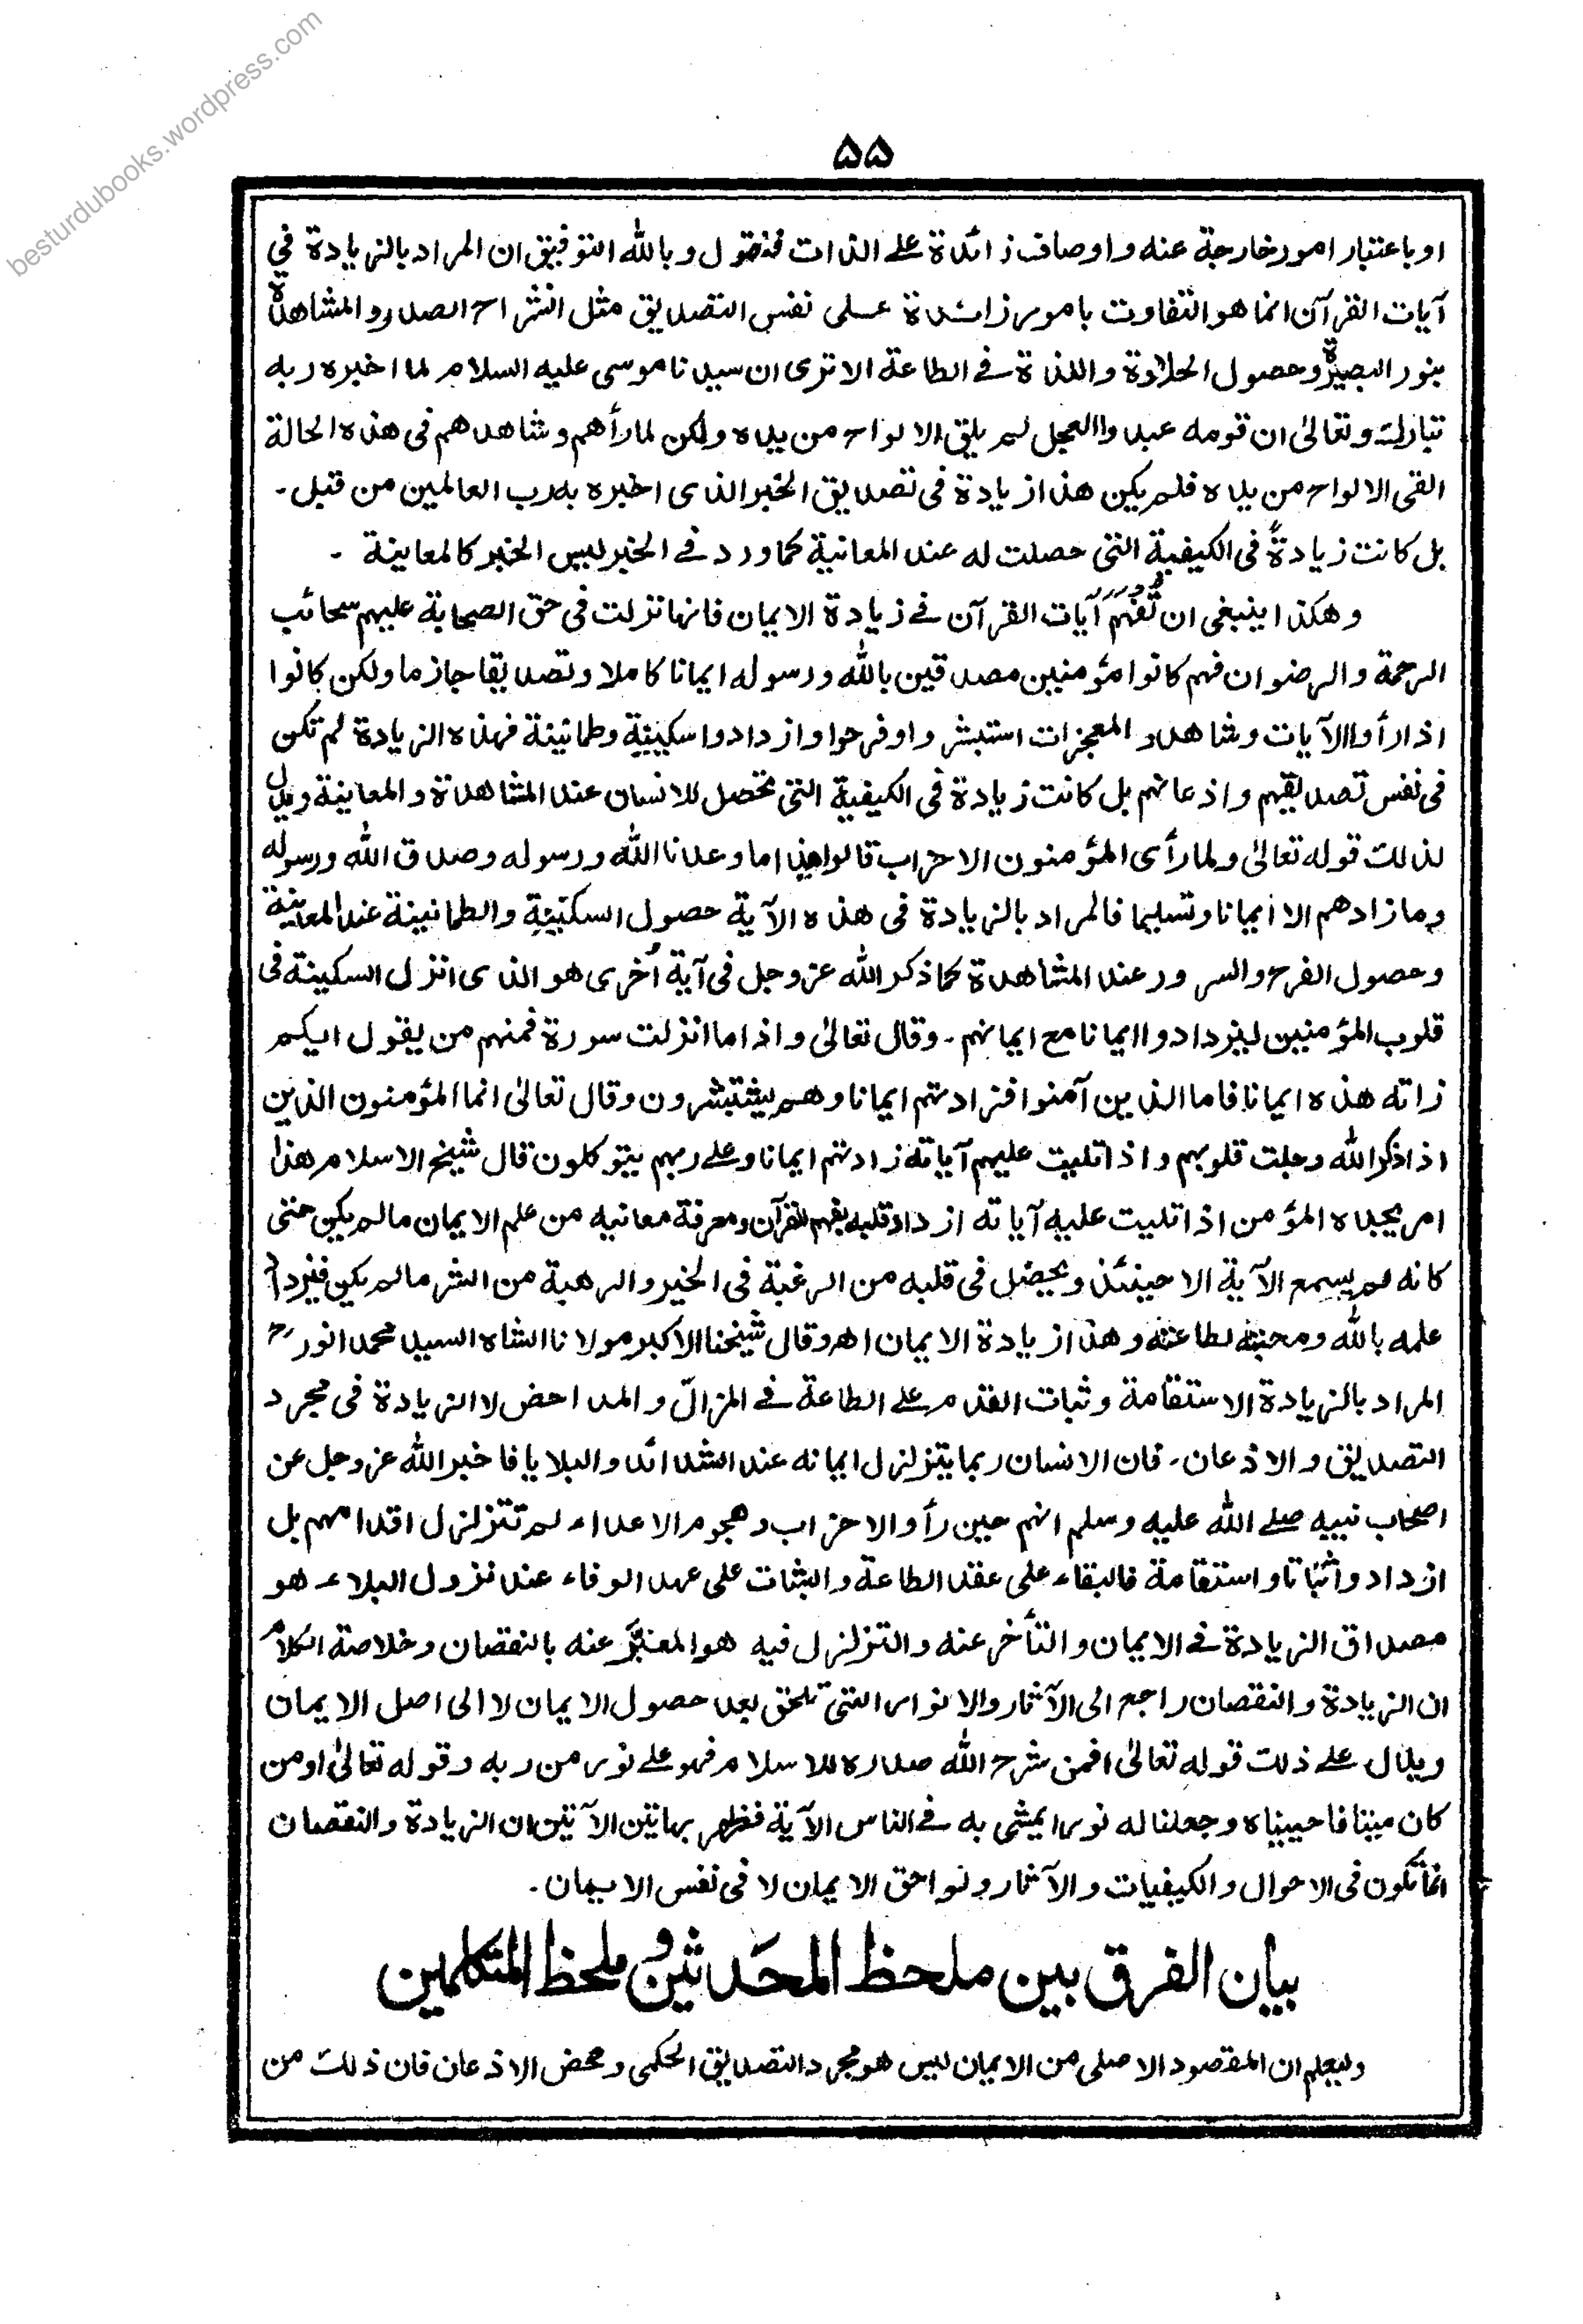 besturdubooks.wordpress.com
۵۵
او باعتبار امور خارجة عنه واوصاف زائدة علے الذات فنقول وبالله التوفيق ان المراد بالزيادة في
آيات القرآن انما هو التفاوت بامور زائدة عـلـى نفس التصديق مثل انشراح الصدر والمشاهدة
بنور البصيرة وحصول الحلاوة واللذة فے الطاعة الا ترى ان سيدنا موسى عليه السلام لما اخبره ربه
تبارك وتعالىٰ ان قومه عبدوا العجل لم يلق الالواح من يده ولكن لما رأهم وشاهدهم فى هذه الحالة
القى الالواح من يده فلم يكن هذا زيادة فى تصديق الخبر الذى اخبره به رب العالمين من قبل ۔
بل كانت زيادةً فى الكيفية التى حصلت له عند المعانية كما ورد فے الخبر ليس الخبر كالمعاينة ۔
وهكذا ينبغى ان تُفهَم آيات القرآن فے زيادة الايمان فانها نزلت فى حق الصحابة عليهم سحائب
الرحمة والرضوان فهم كانوا مؤمنين مصدقين بالله ورسوله ايمانا كاملا وتصديقا جازما ولكن كانوا
اذا رأوا الآيات وشاهدوا المعجزات استبشروا وفرحوا وازدادوا سكينة وطمانينة فهذه الزيادة لم تكن
فى نفس تصديقهم واذعانهم بل كانت زيادة فى الكيفية التى تحصل للانسان عند المشاهدة والمعاينة ويدل
لذلك قوله تعالىٰ ولما رأى المؤمنون الاحزاب قالوا هذا ما وعدنا الله ورسوله وصدق الله ورسوله
وما زادهم الا ايمانا وتسليما فالمراد بالزيادة فى هذه الآية حصول السكينة والطمانينة عند المعاينة
وحصول الفرح والسرور عند المشاهدة كما ذكر الله عز وجل فى آية اُخرى هو الذى انزل السكينة فى
قلوب المؤمنين ليزدادوا ايمانا مع ايمانهم ۔ وقال تعالىٰ واذا ما انزلت سورة فمنهم من يقول ايكم
زاته هذه ايمانا فاما الذين آمنوا فزادتهم ايمانا وهم يستبشرون وقال تعالىٰ انما المؤمنون الذين
اذا ذكر الله وجلت قلوبهم واذا تليت عليهم آياته زادتهم ايمانا وعلے ربهم يتوكلون قال شيخ الاسلام هذا
امر يجده المؤمن اذا تليت عليه آياته ازداد قلبه بفهم القرآن ومعرفة معانيه من علم الايمان ما لم يكن حتى
كانه لم يسمع الآية الا حينئذ ويحصل فى قلبه من الرغبة فى الخير والرهبة من الشر ما لم يكن فيزداد
علمه بالله ومحبته لطاعته وهذا زيادة الايمان اھ وقال شيخنا الاكبر مولانا الشاه السيد محمد انورؒ
المراد بالزيادة الاستقامة وثبات القدم علے الطاعة فے المزالّ والمداحض لا الزيادة فى مجرد
التصديق والاذعان ۔ فان الانسان ربما يتزلزل ايمانه عند الشدائد والبلايا فاخبر الله عز وجل عن
اصحاب نبيه صلے الله عليه وسلم انهم حين رأوا الاحزاب وهجوم الاعداء لم تتزلزل اقدامهم بل
ازدادوا ثباتا واستقامة فالبقاء على عقد الطاعة والثبات على عهد الوفاء عند نزول البلاء هو
مصداق الزيادة فے الايمان والتأخر عنه والتزلزل فيه هو المعبَّر عنه بالنقصان وخلاصة الكلام
ان الزيادة والنقصان راجع الى الآثار والانوار التى تلحق بعد حصول الايمان لا الى اصل الايمان
ويدل علے ذلك قوله تعالىٰ افمن شرح الله صدره للاسلام فهو علے نور من ربه وقوله تعالىٰ اومن
كان ميتا فاحييناه وجعلنا له نورا يمشى به فے الناس الآية فظهر بهاتين الآتين ان الزيادة والنقصان
انما تكون فى الاحوال والكيفيات والآثار ولواحق الايمان لا فى نفس الايمان ۔
بيان الفرق بين ملحظ المحَدثين وملحظ المتكلمين
وليعلم ان المقصود الاصلى من الايمان ليس هو مجرد التصديق الحكمى ومحض الاذعان فان ذلك من